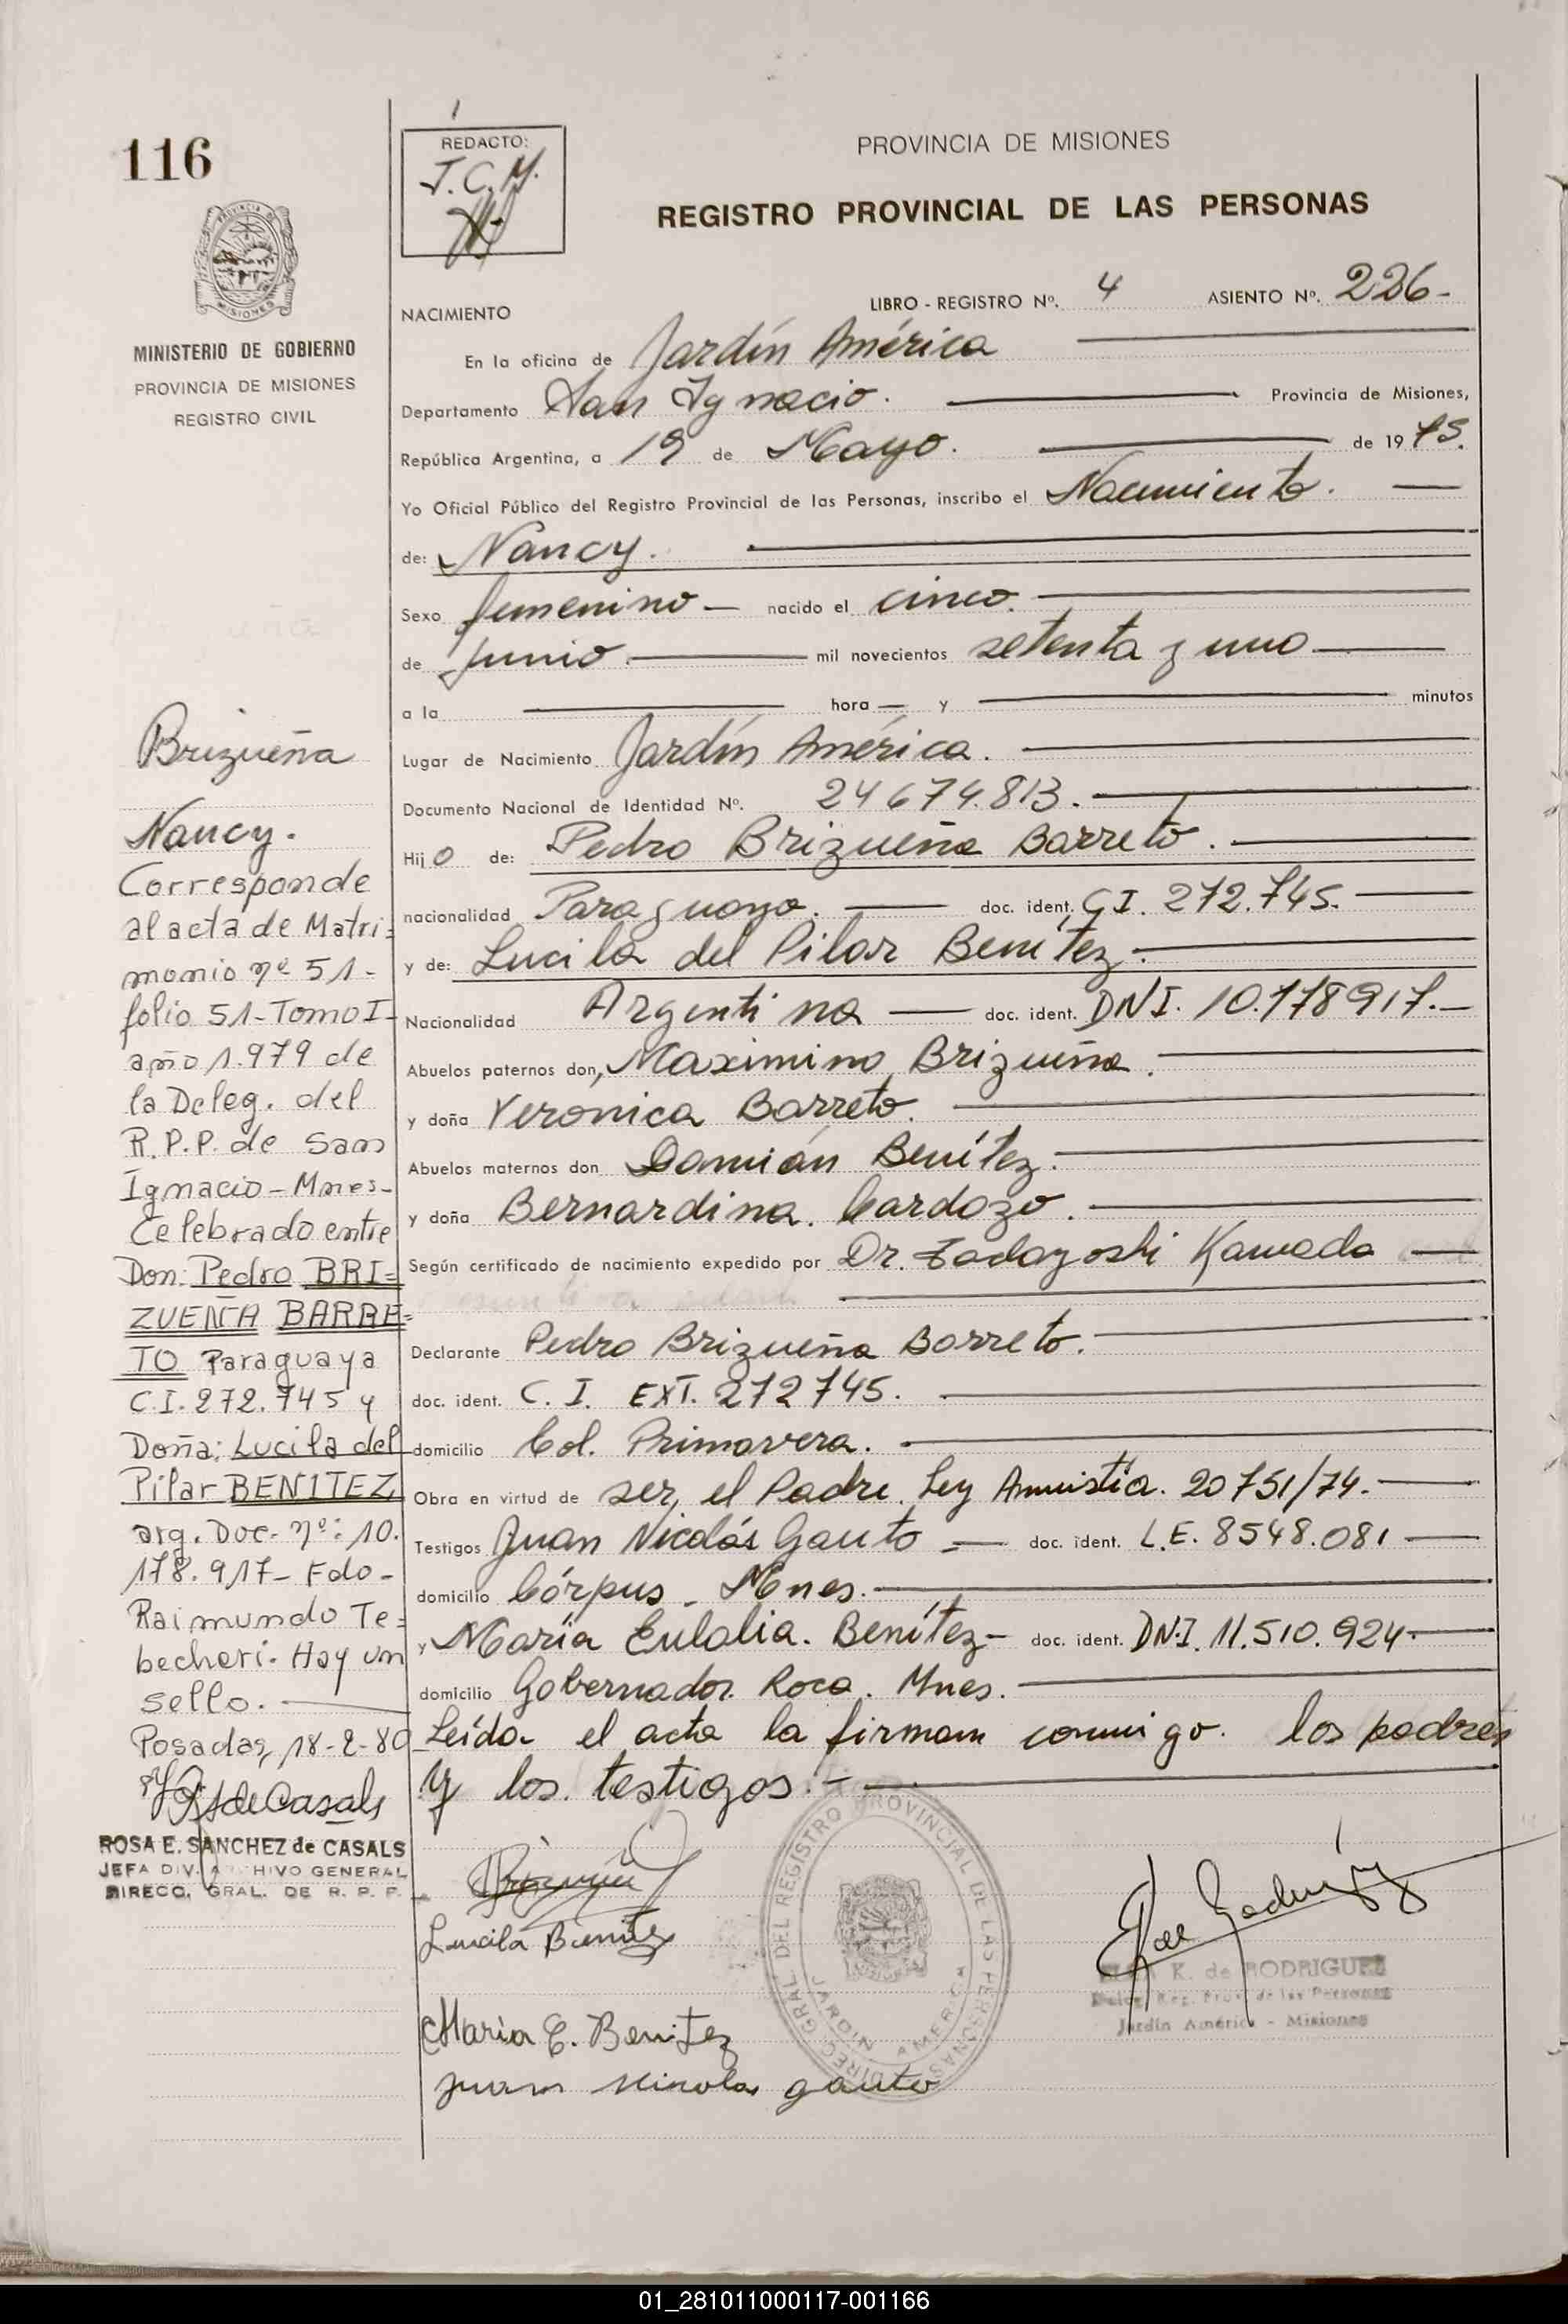 116
REDACTO:
J.C.M.
PROVINCIA DE MISIONES
REGISTRO PROVINCIAL DE LAS PERSONAS
MINISTERIO DE GOBIERNO
PROVINCIA DE MISIONES
REGISTRO CIVIL
NACIMIENTO LIBRO - REGISTRO Nº. 4 ASIENTO Nº. 226-
En la oficina de Jardín América
Departamento San Ignacio. Provincia de Misiones,
República Argentina, a 19 de Mayo. de 1975.
Yo Oficial Público del Registro Provincial de las Personas, inscribo el Nacimiento.
de: Nancy.
Sexo femenino - nacido el cinco.
de junio. mil novecientos setenta y uno
a la hora y minutos
Lugar de Nacimiento Jardín América.
Documento Nacional de Identidad Nº. 24674.813.
Hijo de: Pedro Brizueña Barreto.
nacionalidad Paraguaya. doc. ident. C.I. 272.745.
y de: Lucila del Pilar Benítez.
Nacionalidad Argentina doc. ident. DNI. 10.178917.
Abuelos paternos don, Maximino Brizueña.
y doña Veronica Barreto.
Abuelos maternos don Damián Benítez.
y doña Bernardina. Cardozo.
Según certificado de nacimiento expedido por Dr. Tadayoshi Kamada
Declarante Pedro Brizueña Barreto.
doc. ident. C. I. EXT. 272745.
domicilio Col. Primavera.
Obra en virtud de ser, el Padre. Ley Amnistía. 20751/74.
Testigos Juan Nicolás Gauto doc. ident. L.E. 8548.081
domicilio Córpus - Mnes.
y María Eulalia. Benítez - doc. ident. DN.I. 11.510.924.
domicilio Gobernador. Roca. Mnes.
Leída el acta la firman conmigo. los padres
y los testigos.-
Brizueña
Nancy.
Corresponde
al acta de Matri=
monio nº 51-
folio 51-Tomo I-
año 1.979 de
la Deleg. del
R.P.P. de San
Ignacio-Mnes-
Celebrado entre
Don: Pedro BRI=
ZUEÑA BARRE=
TO Paraguaya
C.I. 272.745 y
Doña: Lucila del
Pilar BENITEZ,
arg. Doc- nº: 10.
178.917- Fdo-
Raimundo Te=
becheri- Hay un
sello.
Posadas, 18-2-80
de Casals
ROSA E. SANCHEZ de CASALS
JEFA DIV. ARCHIVO GENERAL
DIRECC. GRAL. DE R. P. P.
Lucila Benitez
Maria E. Benitez
Juan Nicolas gauto
DIREC. GRAL. DEL REGISTRO PROVINCIAL DE LAS PERSONAS
JARDIN AMERICA
K. de RODRIGUEZ
Reg. Prov. de las Personas
Jardín América - Misiones
01_281011000117-001166